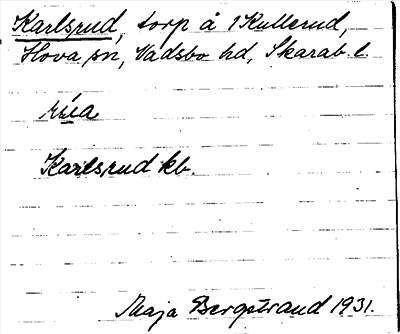 Karlsrud, torp å 1 Kullerud,
Hova sn, Vadsbo hd, Skarab. l.
Karlsrud kb.
Maja Bergstrand 1931.